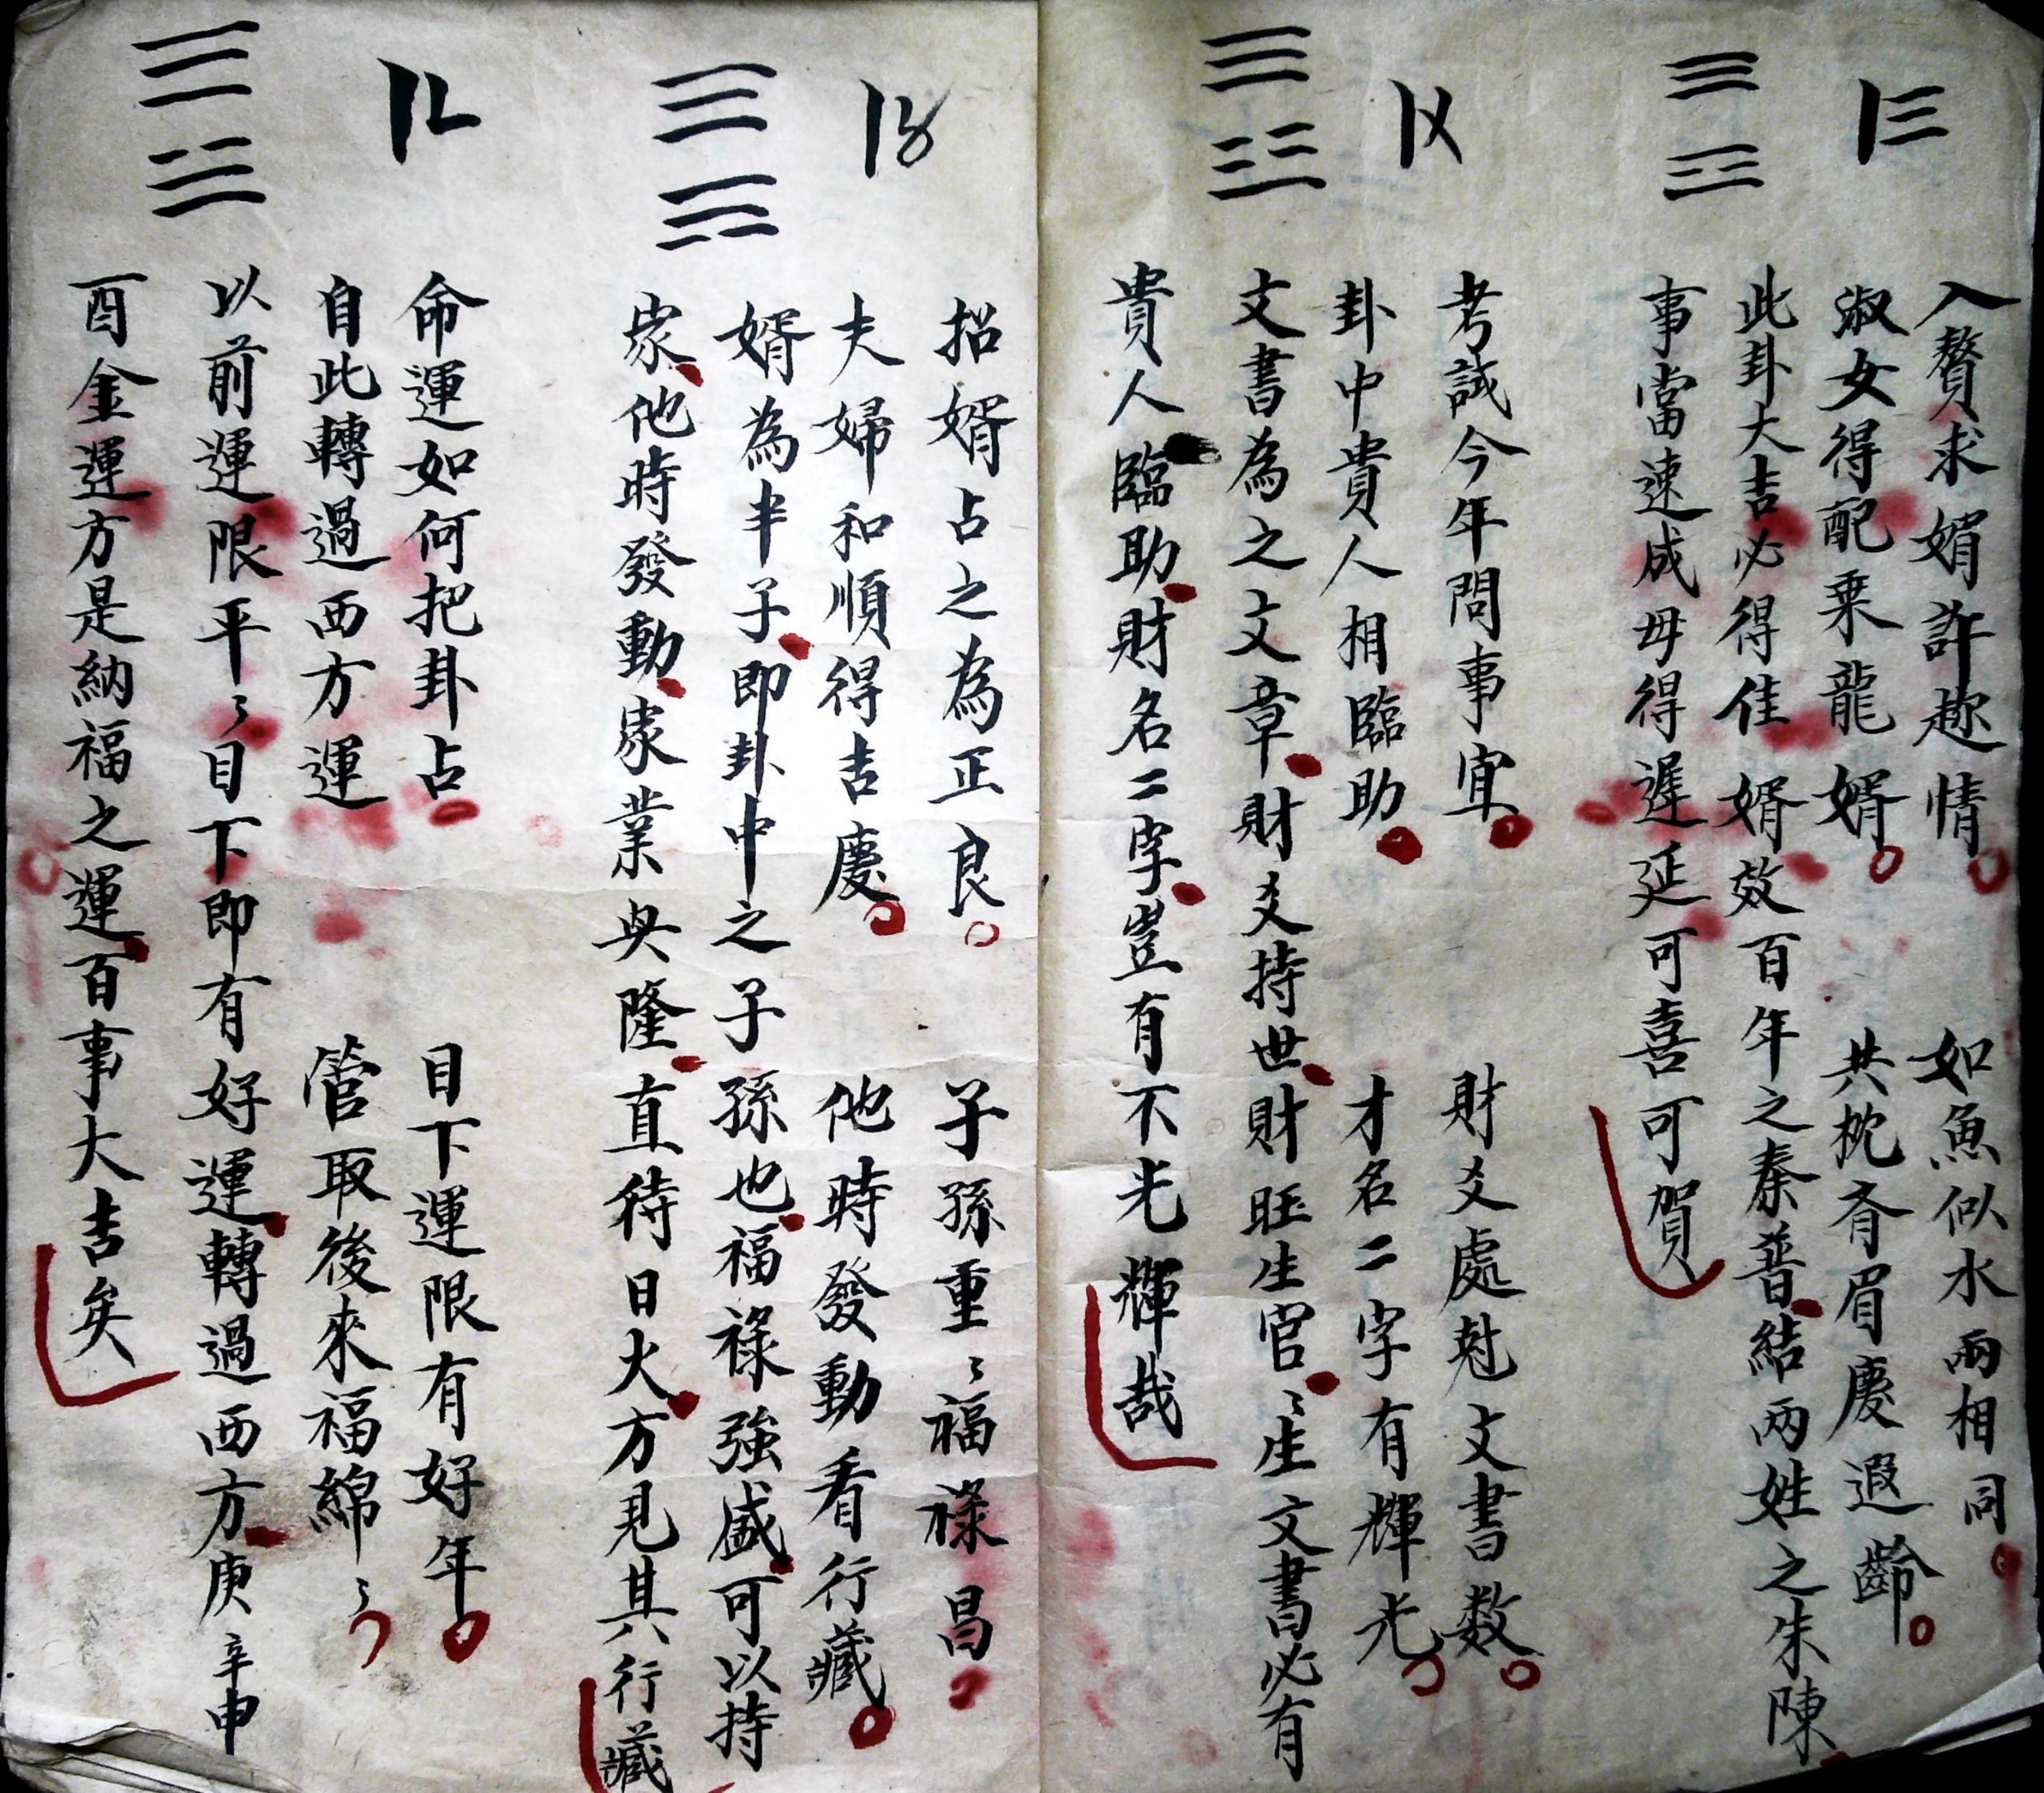 〡三
入贅求婿許趂情 如魚似水兩相同
淑女得配乘龍婿 共枕齊眉慶遐齡
此卦大吉必得佳婿效百年之秦晋結兩姓之朱陳
事當速成毋得遲延可喜可賀
〡〤
考試今年問事宜 財爻處尅文書数
卦中貴人相臨助 才名二字有輝光
文書為之文章財爻持世財旺生官〻生文書必有
貴人臨助財名二字豈有不光輝哉
〡〥
招婿占之為正良 子孫重〻福祿昌
夫婦和順得吉慶 他時發動看行藏
婿為半子即卦中之子孫也福祿強盛可以持
家他時發動家業興隆直待日久方見其行藏
〡〦
命運如何把卦占 目下運限有好年
自此轉過西方運 管取後來福綿〻
以前運限平〻目下即有好運轉過西方庚辛申
酉金運方是納福之運百事大吉矣